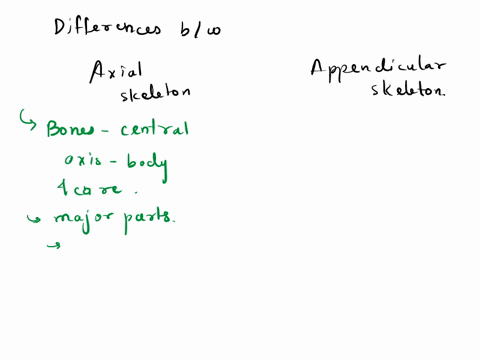 Differences b/w
Axial
skeleton
Appendicular
skeleton.
Bones - central
axis - body
& core.
major parts.